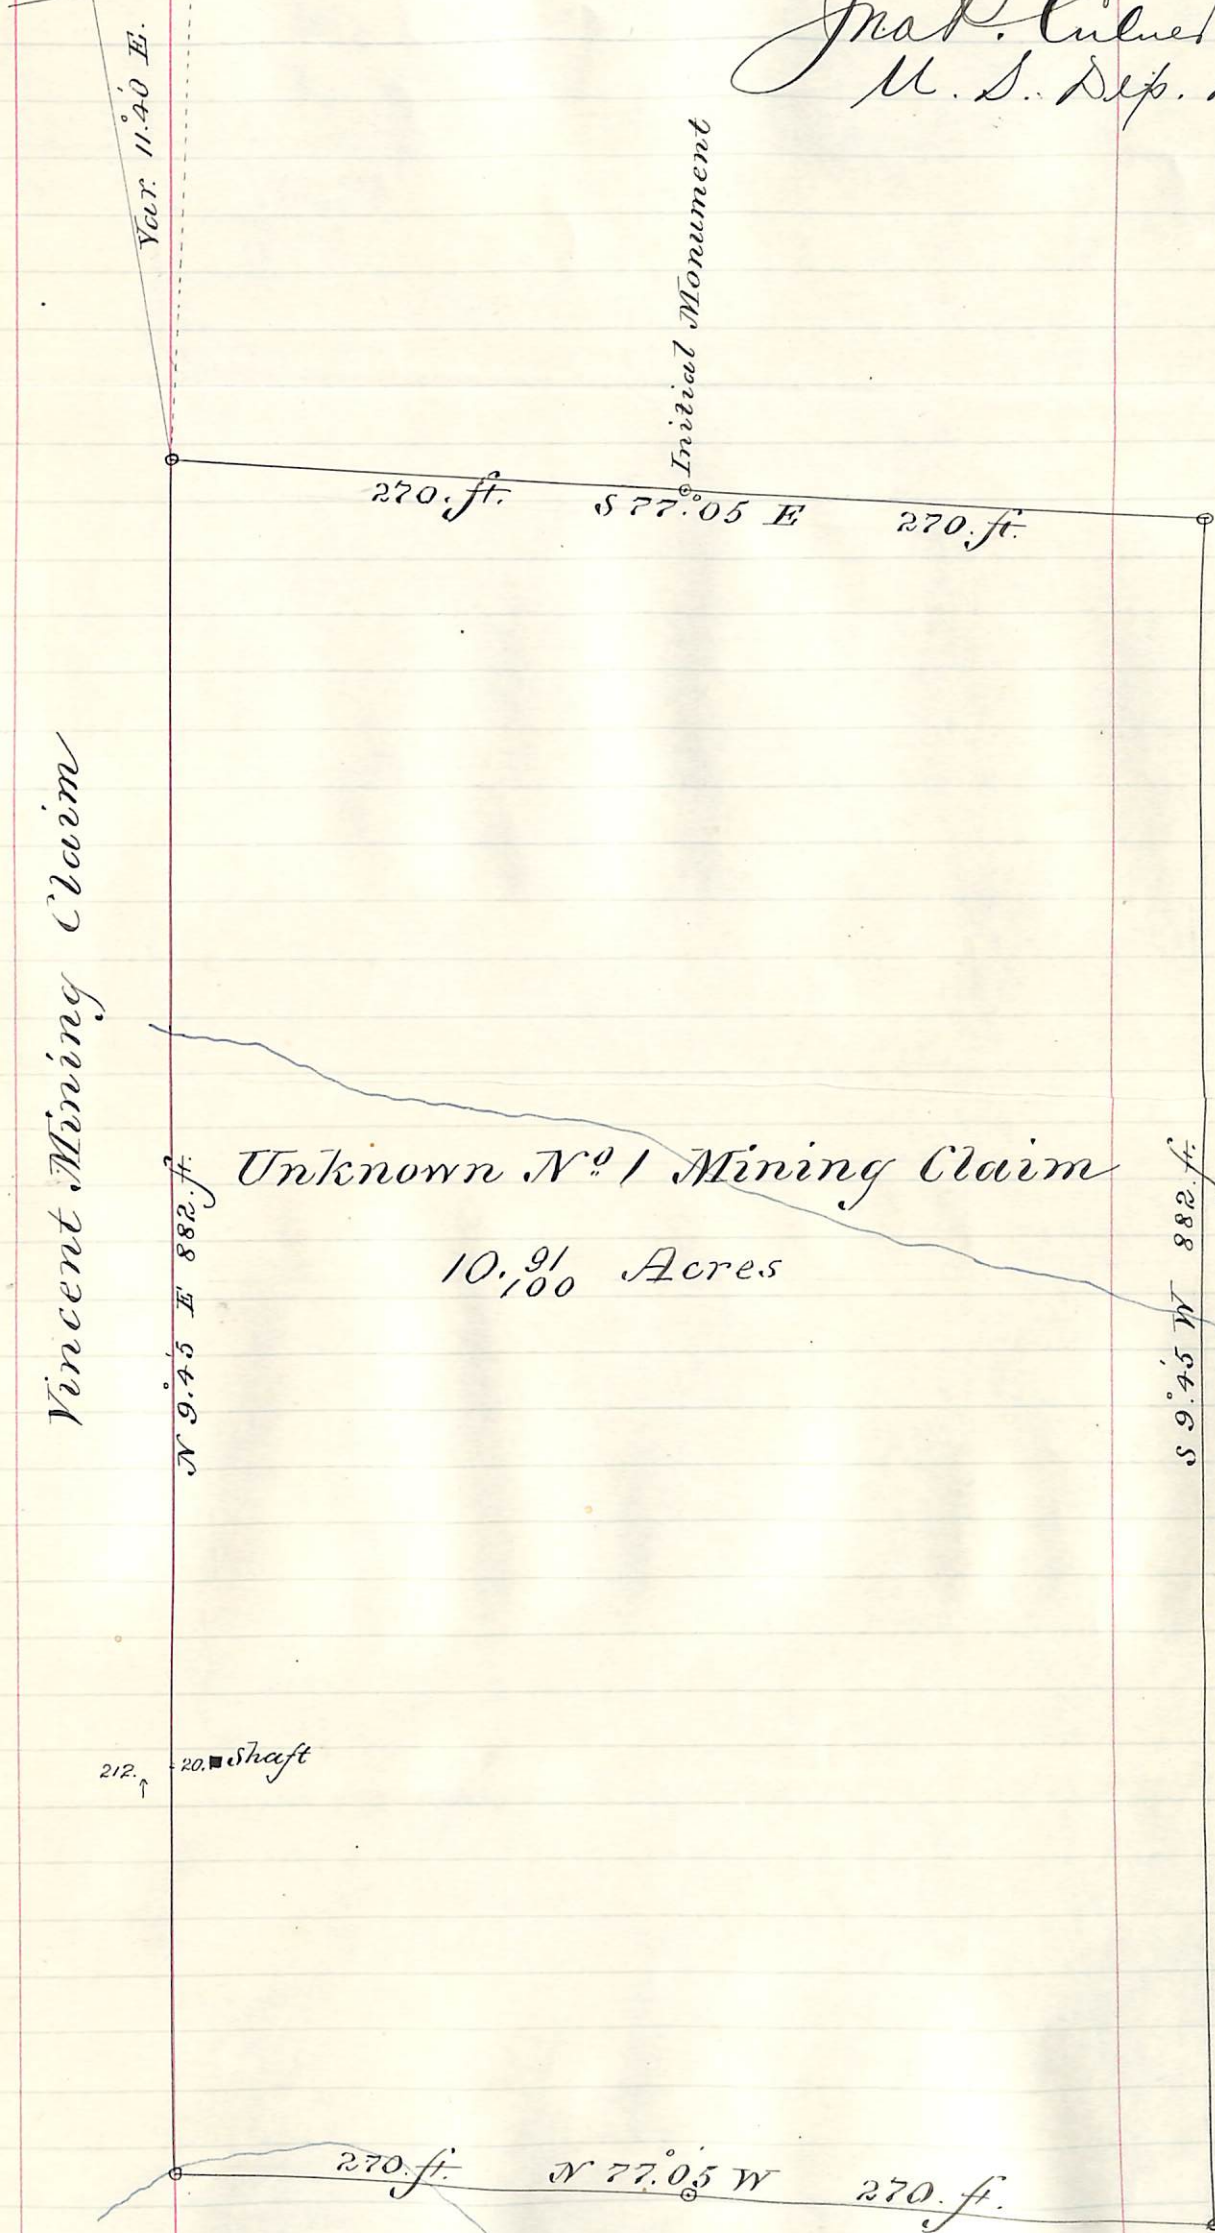 U. S. Dep.
Var. 11.°40' E.
Initial Monument
270. ft. S 77.°05 E 270. ft.
Vincent Mining Claim
N 9.°45' E 882. ft.
Unknown Nº 1 Mining Claim
10. 91/100 Acres
S 9.°45' W 882. ft.
212. ↑ 20. Shaft
270. ft. N 77.°05' W 270. ft.